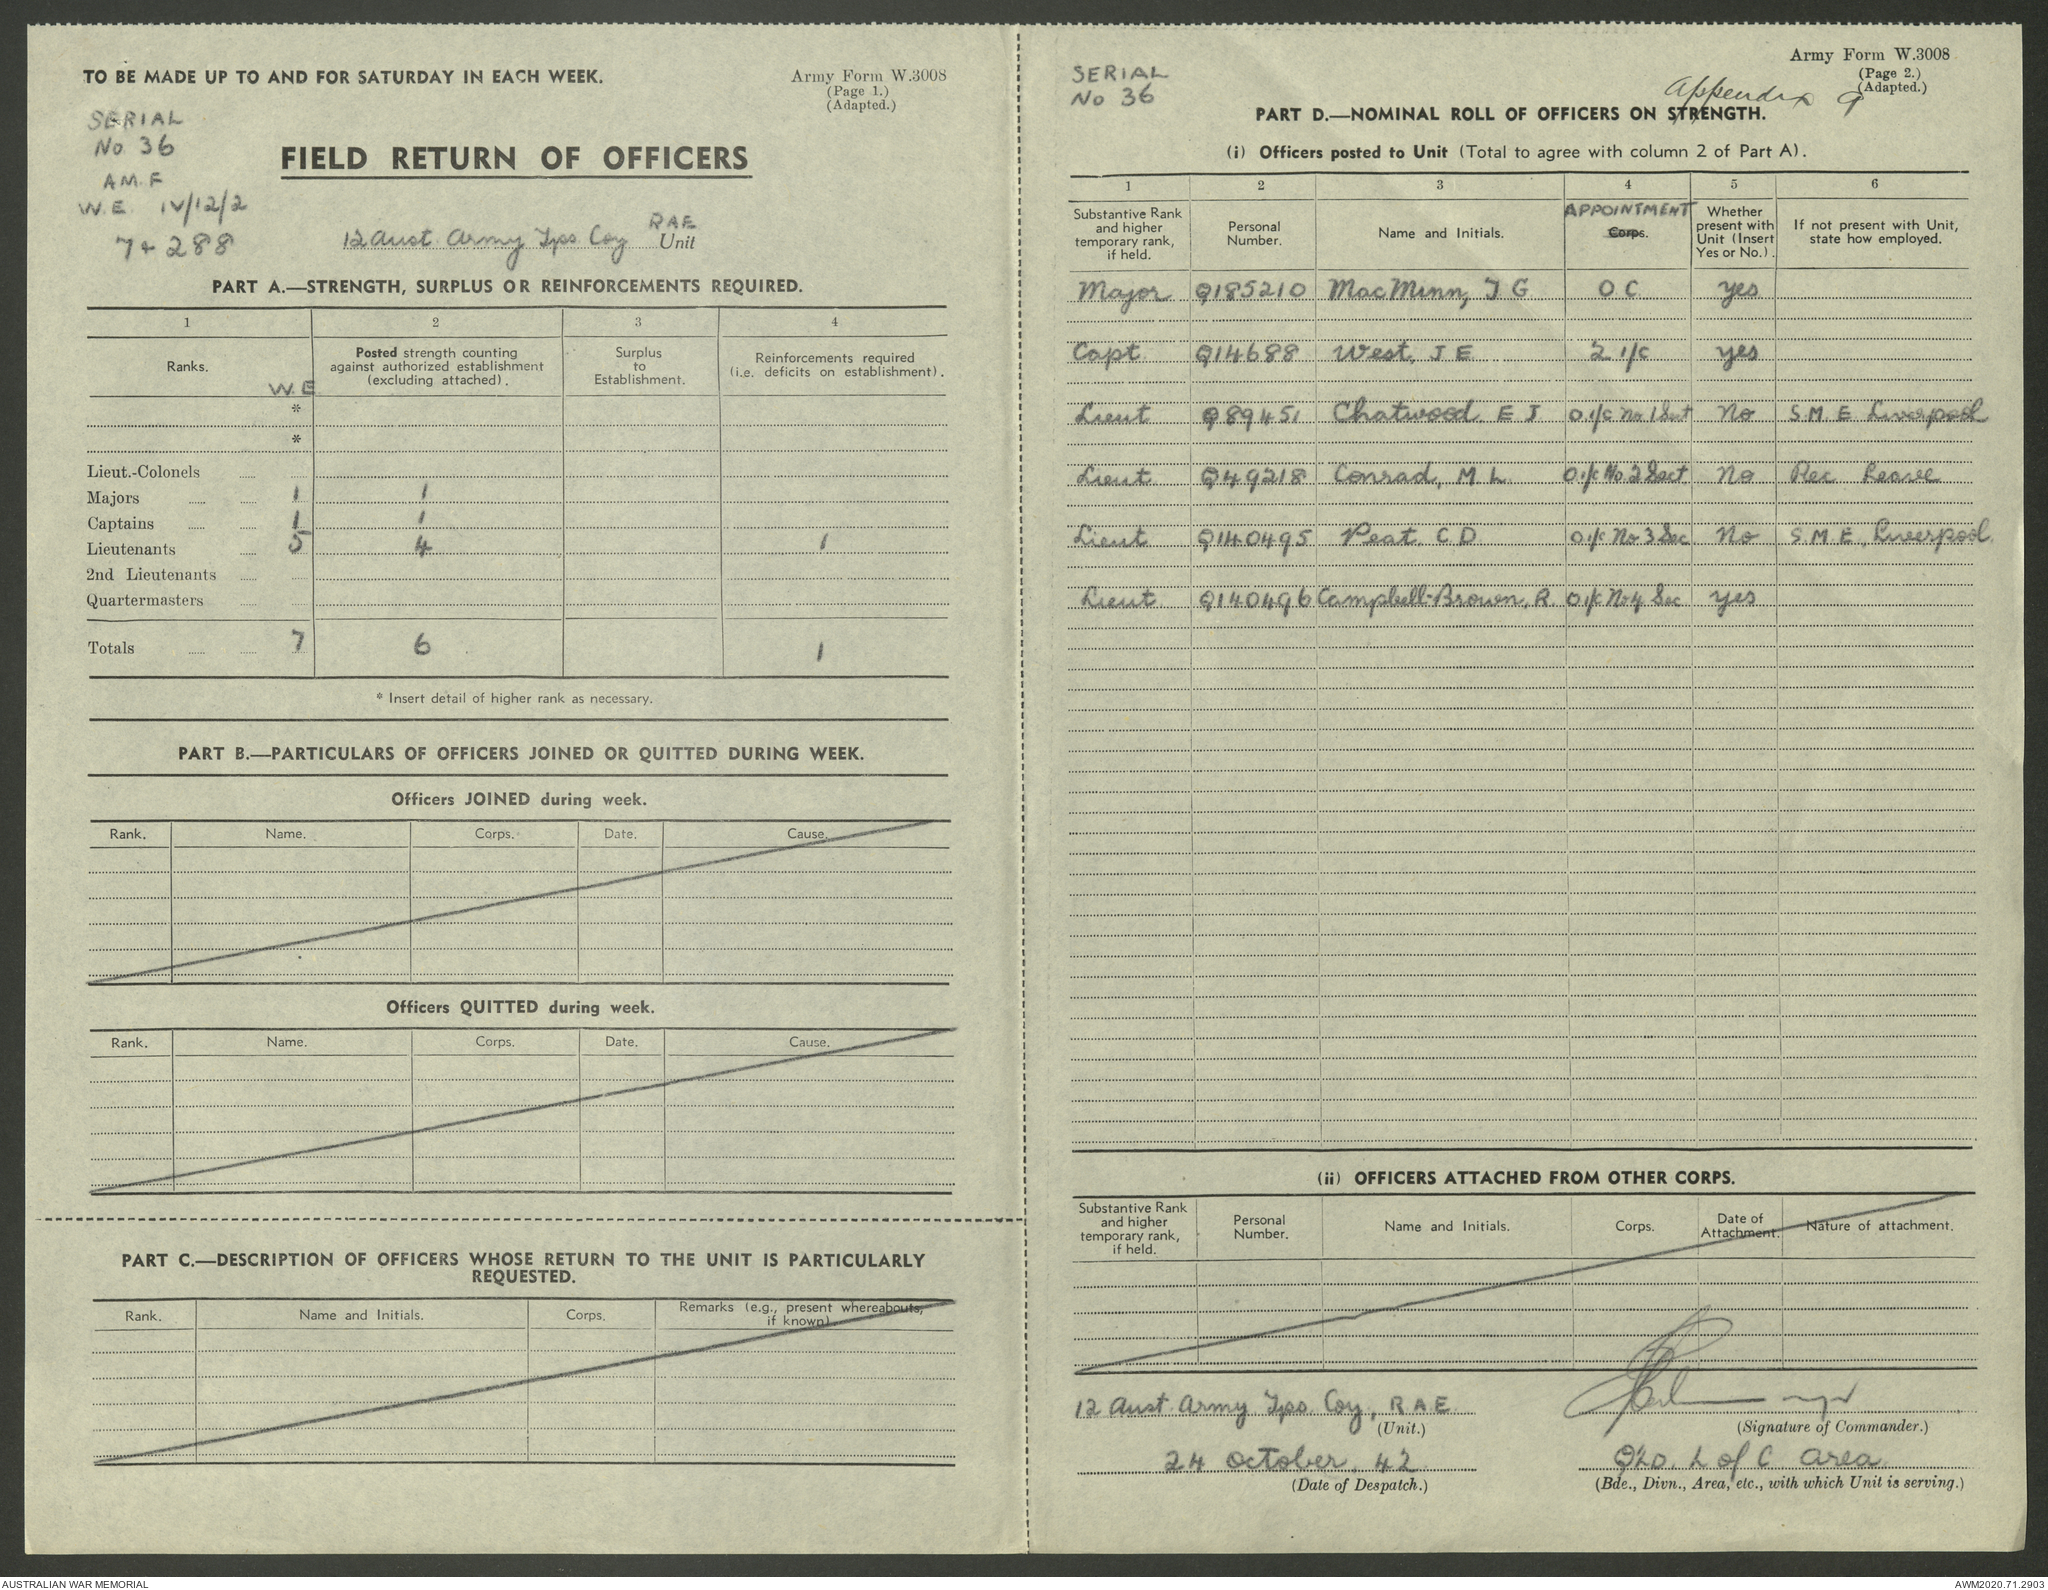 TO BE MADE UP TO AND FOR SATURDAY IN EACH WEEK.
Army Form W.3008
(Page 1.)
(Adapted.)
SERIAL
No 36
A M. F
W. E. IV/12/2
7 + 288
FIELD RETURN OF OFFICERS
12 Aust. Army Tps Coy RAE Unit
PART A.—STRENGTH, SURPLUS OR REINFORCEMENTS REQUIRED.
1 2 3 4
Ranks. W.E Posted strength counting against authorized establishment (excluding attached). Surplus to Establishment. Reinforcements required (i.e. deficits on establishment).
*
*
Lieut.-Colonels
Majors 1 1
Captains 1 1
Lieutenants 5 4 1
2nd Lieutenants
Quartermasters
Totals 7 6 1
* Insert detail of higher rank as necessary.
PART B.—PARTICULARS OF OFFICERS JOINED OR QUITTED DURING WEEK.
Officers JOINED during week.
Rank. Name. Corps. Date. Cause.
Officers QUITTED during week.
Rank. Name. Corps. Date. Cause.
PART C.—DESCRIPTION OF OFFICERS WHOSE RETURN TO THE UNIT IS PARTICULARLY
REQUESTED.
Rank. Name and Initials. Corps. Remarks (e.g., present whereabouts, if known)
SERIAL
No 36
Army Form W.3008
(Page 2.)
(Adapted.)
Appendix 9
PART D.—NOMINAL ROLL OF OFFICERS ON STRENGTH.
(i) Officers posted to Unit (Total to agree with column 2 of Part A).
1 2 3 4 5 6
Substantive Rank and higher temporary rank, if held. Personal Number. Name and Initials. APPOINTMENT Corps. Whether present with Unit (Insert Yes or No.). If not present with Unit, state how employed.
Major Q185210 MacMinn, J G O C yes
Capt. Q14688 West, J E 2 i/c yes
Lieut Q89451 Chatwood E J O.i/c No 1 Sect No S.M.E Liverpool
Lieut Q49218 Conrad, M L O.i/c No 2 Sect No Rec Leave
Lieut Q140495 Peat C D O.i/c No 3 Sec No S.M.E, Liverpool
Lieut Q140496 Campbell-Brown, R O.i/c No 4 Sec yes
(ii) OFFICERS ATTACHED FROM OTHER CORPS.
Substantive Rank and higher temporary rank, if held. Personal Number. Name and Initials. Corps. Date of Attachment. Nature of attachment.
12 Aust. Army Tps Coy, R A E
(Unit.)
(Signature of Commander.)
24 October, 42
(Date of Despatch.)
Qld. L of C Area
(Bde., Divn., Area, etc., with which Unit is serving.)
AUSTRALIAN WAR MEMORIAL
AWM2020.71.2903